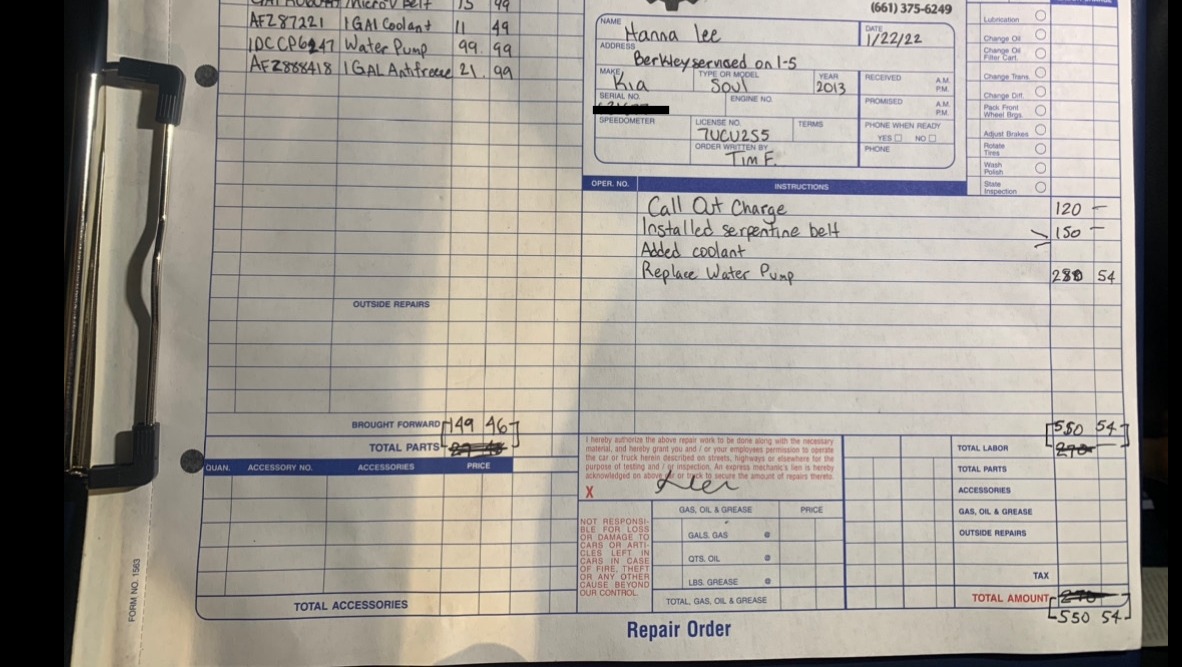 Micro V Belt 15 99
AFZ87221 1 GAl Coolant 11 49
IDC CP6247 Water Pump 99. 99
AFZ888418 1 GAL Antifreeze 21. 99
OUTSIDE REPAIRS
BROUGHT FORWARD 149 46
TOTAL PARTS
QUAN. ACCESSORY NO. ACCESSORIES PRICE
TOTAL ACCESSORIES
FORM NO. 1563
(661) 375-6249
NAME Hanna Lee
DATE 1/22/22
ADDRESS Berkley serviced on I-5
MAKE Kia
TYPE OR MODEL Soul
YEAR 2013
RECEIVED A.M. P.M.
SERIAL NO.
ENGINE NO.
PROMISED A.M. P.M.
SPEEDOMETER
LICENSE NO. 7UCU255
TERMS
PHONE WHEN READY
YES NO
ORDER WRITTEN BY Tim F.
PHONE
Lubrication
Change Oil
Change Oil
Filter Cart.
Change Trans.
Change Diff.
Pack Front
Wheel Brgs.
Adjust Brakes
Rotate
Tires
Wash
Polish
State
Inspection
OPER. NO. INSTRUCTIONS
Call Out Charge 120 -
Installed serpentine belt 150 -
Added coolant
Replace Water Pump 280 54
I hereby authorize the above repair work to be done along with the necessary
material, and hereby grant you and / or your employees permission to operate
the car or truck herein described on streets, highways or elsewhere for the
purpose of testing and / or inspection. An express mechanic's lien is hereby
acknowledged on above car or truck to secure the amount of repairs thereto.
X Lee
NOT RESPONSI-
BLE FOR LOSS
OR DAMAGE TO
CARS OR ARTI-
CLES LEFT IN
CARS IN CASE
OF FIRE, THEFT
OR ANY OTHER
CAUSE BEYOND
OUR CONTROL.
GAS, OIL & GREASE PRICE
GALS. GAS @
QTS. OIL @
LBS. GREASE @
TOTAL, GAS, OIL & GREASE
550 54
TOTAL LABOR 270-
TOTAL PARTS
ACCESSORIES
GAS, OIL & GREASE
OUTSIDE REPAIRS
TAX
TOTAL AMOUNT 270-
550 54
Repair Order